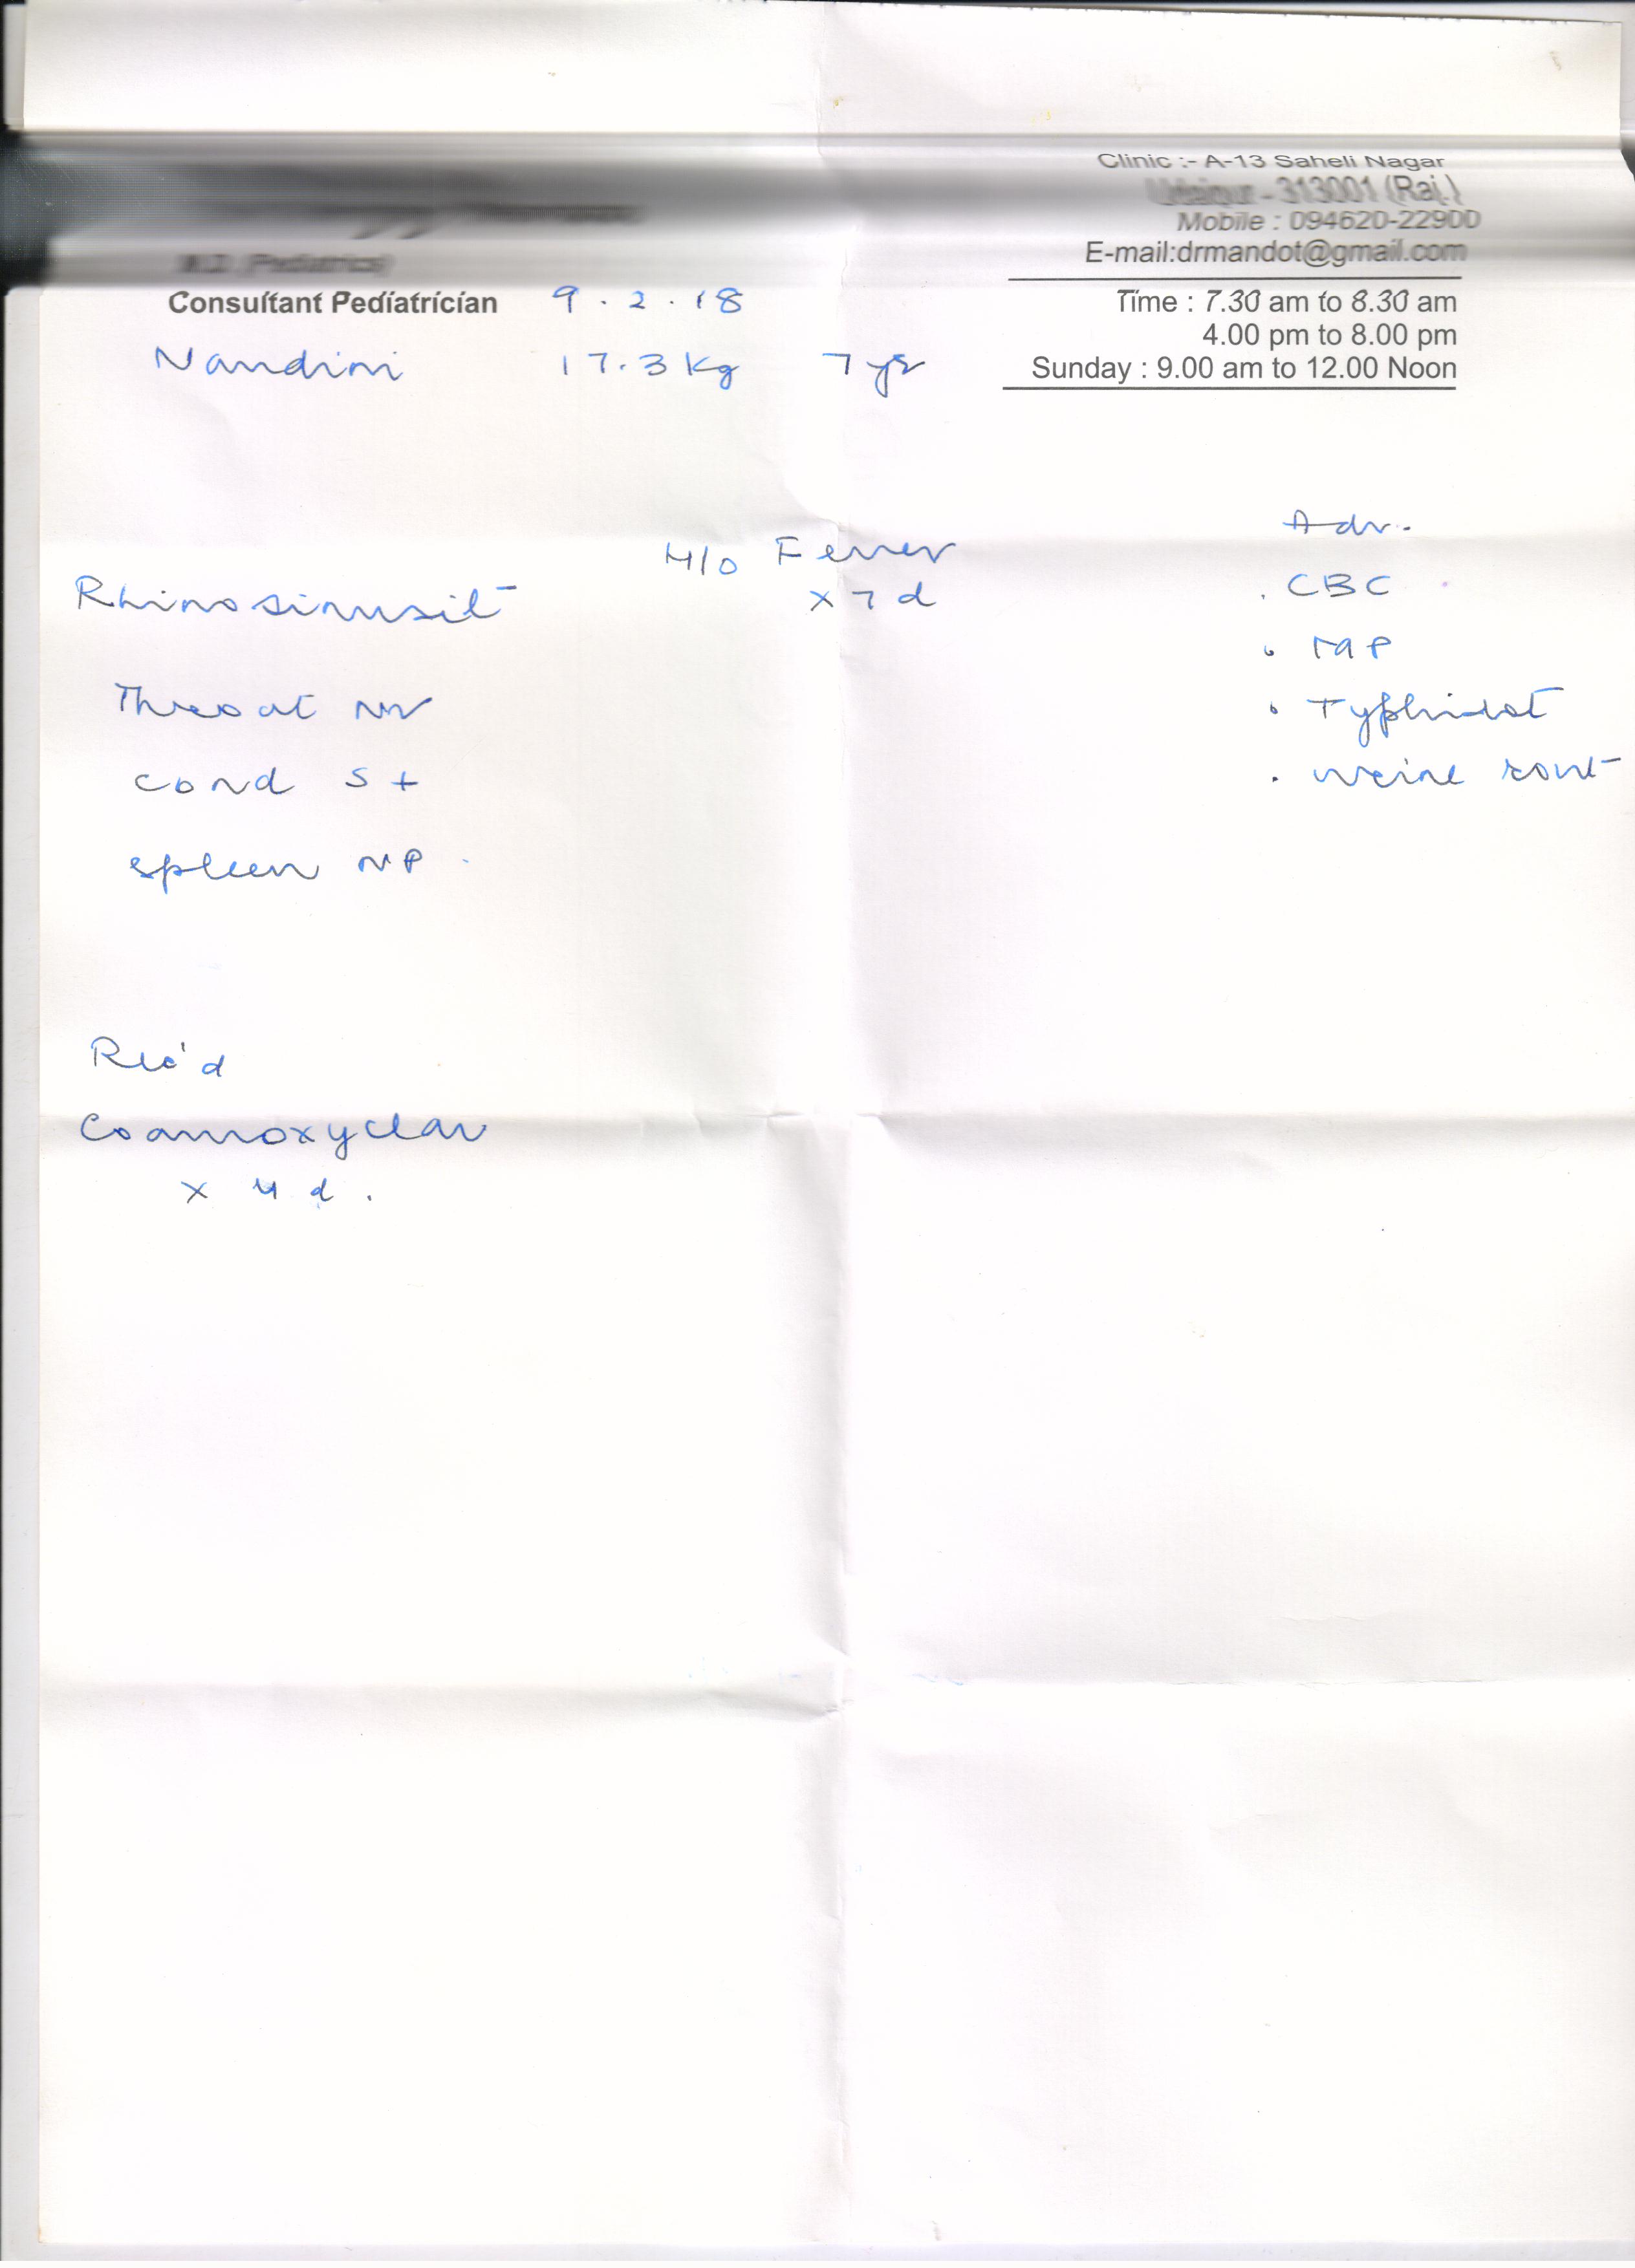 Clinic :- A-13 Saheli Nagar
Udaipur - 313001 (Raj.)
Mobile : 094620-22900
E-mail:drmandot@gmail.com
M.D. (Pediatrics)
Consultant Pediatrician 9.2.18
Time : 7.30 am to 8.30 am
4.00 pm to 8.00 pm
Sunday : 9.00 am to 12.00 Noon
Nandini 17.3 kg 7 yr
Adv.
H/o Fever
x 7 d
Rhinosinusit
. CBC
. MP
Throat
. Typhidot
cond s +
. urine rout
spleen NP
Rec'd
Coamoxyclav
x 4 d.